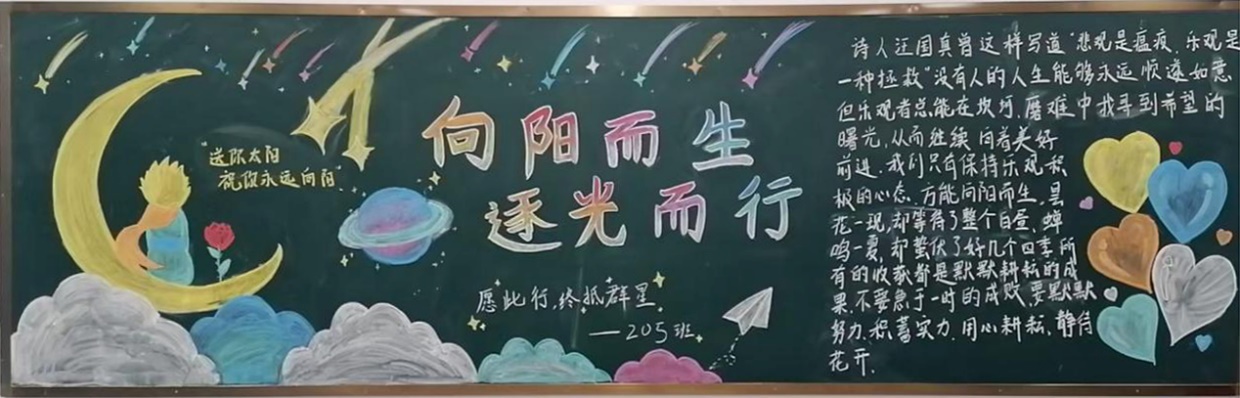 "送你太阳
祝你永远向阳"
向阳而生
逐光而行
愿此行,终抵群星
——205班
诗人汪国真曾这样写道"悲观是瘟疫,乐观是
一种拯救"没有人的人生能够永远顺遂如意
但乐观者总能在坎坷,磨难中找寻到希望的
曙光,从而继续向着美好
前进.我们只有保持乐观积
极的心态,方能向阳而生,昙
花一现,却等待了整个白昼,蝉
鸣一夏,却蛰伏了好几个四季,所
有的收获都是默默耕耘的成
果,不要急于一时的成败,要默默
努力,积蓄实力,用心耕耘,静待
花开.